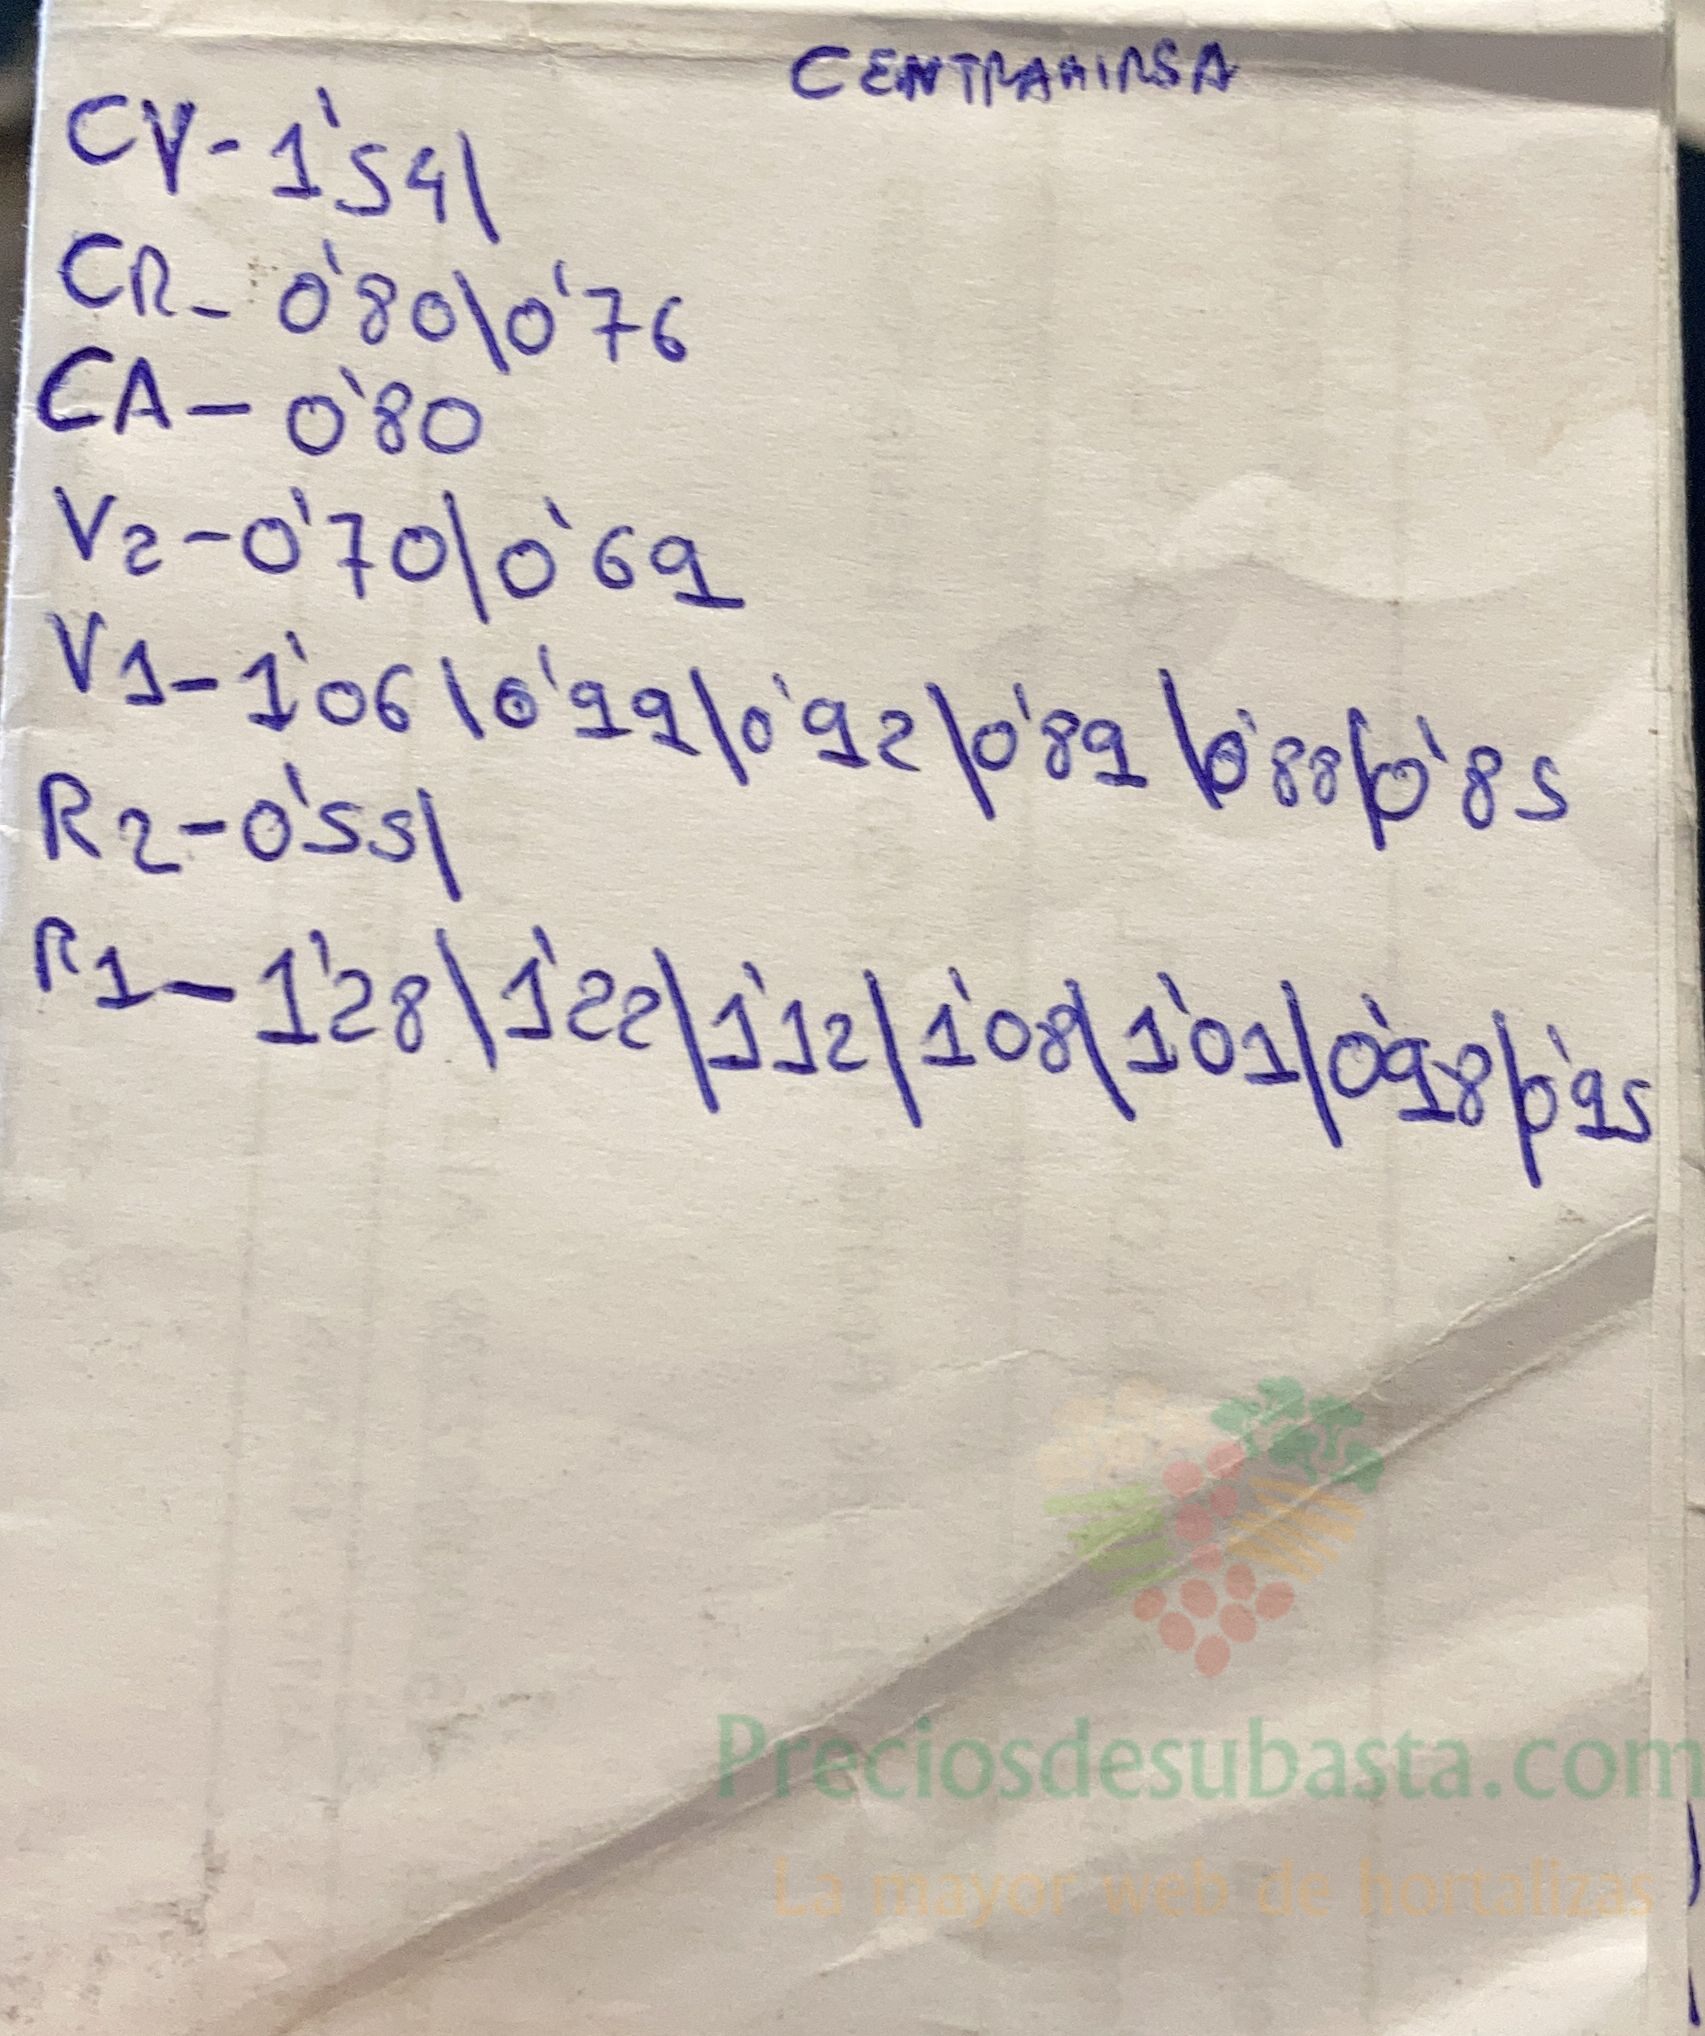 CENTRAMIRSA
CV-1'54\
CR-0'80\0'76
CA-0'80
V2-0'70\0'69
V1-1'06\0'99\0'92\0'89\0'88\0'85
R2-0'55\
R1-1'28\1'22\1'12\1'08\1'01\0'98\0'95
Preciosdesubasta.com
La mayor web de hortalizas